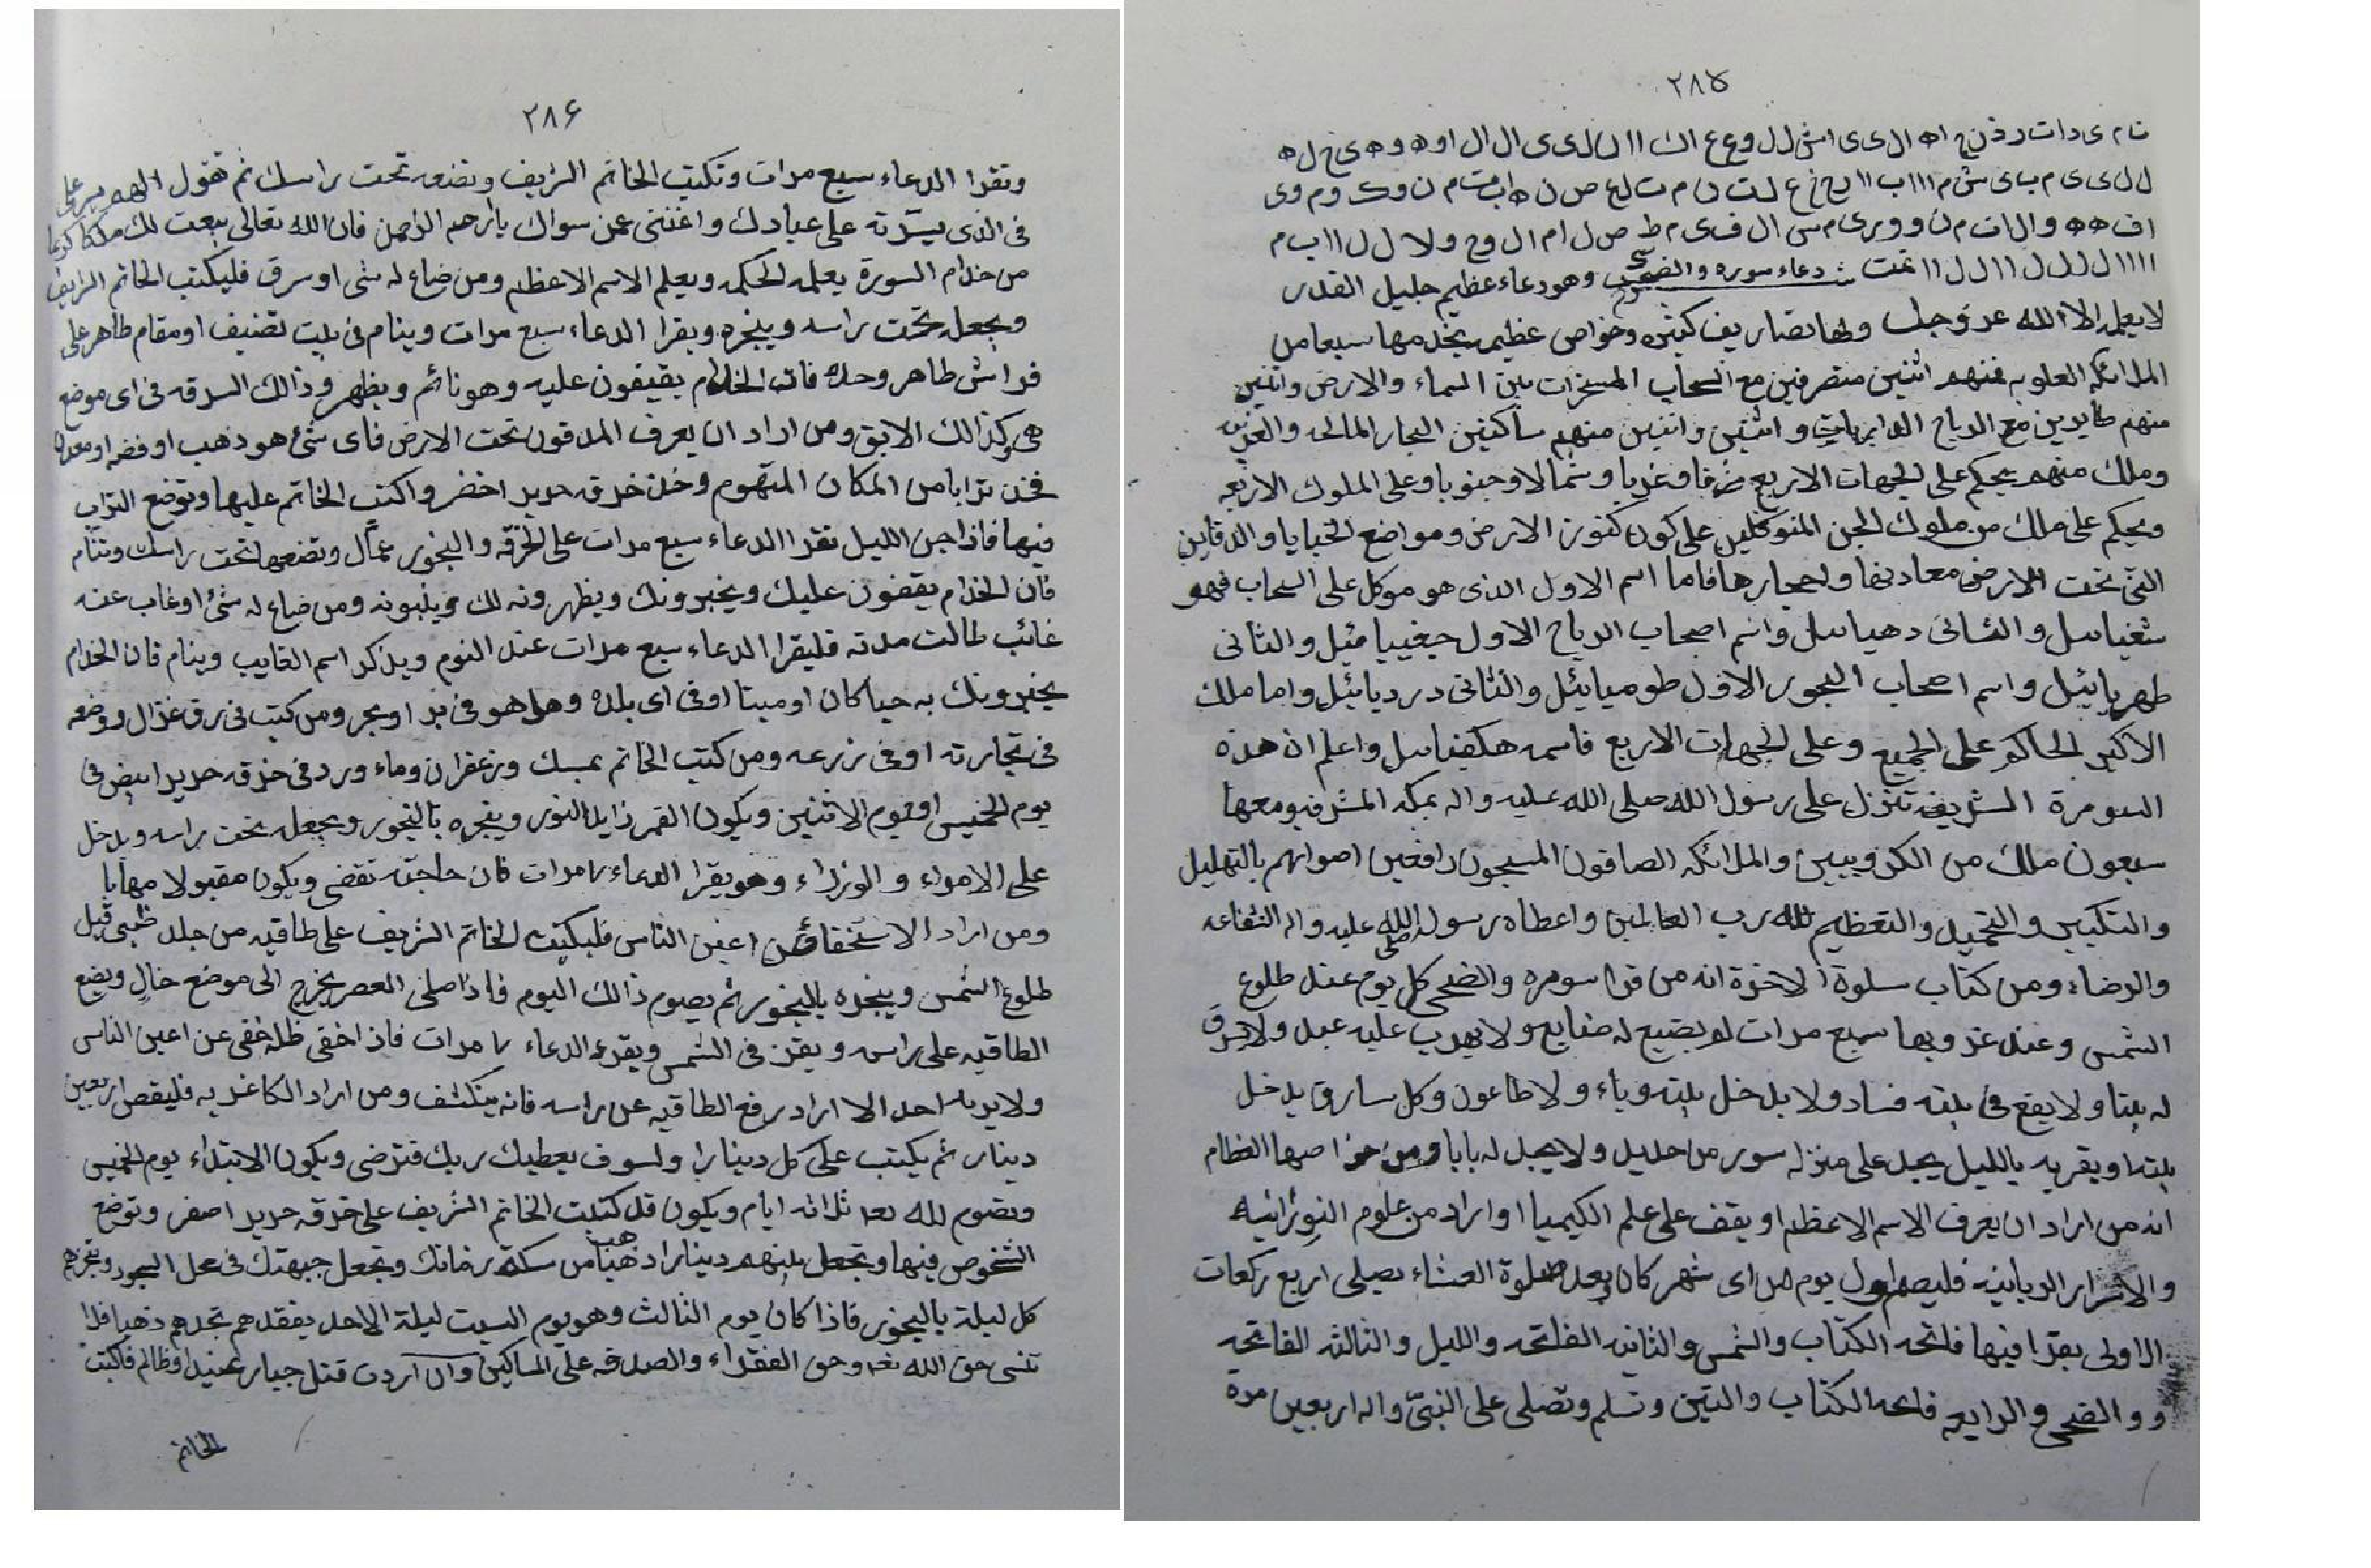 ٢٨٥
لا يعلمه الا الله عز وجل ولها تصاريف كثيره وخواص عظيمه يخدمها سبعا من
الملائكه العلويه فمنهم اثنين متصرفين مع السحاب المسخرات بين السماء والارض واثنين
منهم طايرين مع الرياح الذاريات واثنين واثنين منهم ساكنين البحار المالحه والعذبه
وملك منهم يحكم على الجهات الاربع شرقا وغربا وشمالا وجنوبا وعلى الملوك الاربعه
ويحكم على ملك من ملوك الجن المتوكلين على كون كنوز الارض ومواضع الخبايا والدفاين
التى تحت الارض معادنها واحجارها فاما اسم الاول الذى هو موكل على السحاب فهو
والثانى واسم اصحاب الرياح الاول والثانى
طهريائيل واسم اصحاب البحور الاول طوميائيل والثانى دردیائيل واما ملك
الاكبر الحاكم على الجميع وعلى الجهات الاربع فاسمه واعلم ان هذه
السورة الشريفه تنزل على رسول الله صلى الله عليه واله بمكه المشرفه ومعها
سبعون ملك من الكروبيين والملائكه الصافون المسبحون رافعين اصواتهم بالتهليل
والتكبير والتحميد والتعظيم لله رب العالمين واعطاه رسول الله صلى عليه واله الشفاعه
والرضاء ومن كتاب سلوة الاخرة انه من قرا سوره والضحى كل يوم عند طلوع
الشمس وعند غروبها سبع مرات لو يضيع له ضايع ولا يهرب عليه عبد ولا
له بيتا ولا يقع فى بيته فساد ولا يدخل بيته وباء ولا طاعون وكل سارق يدخل
بيته او يقربه بالليل يجد على منزله سور من حديد ولا يجد له بابا ومن خواصها العظام
انه من اراد ان يعرف الاسم الاعظم او يقف على علم الكيميا او اراد من علوم النورانيه
والاسرار الربانيه فليصم اول يوم من اى شهر كان وبعد صلوة العشاء يصلى اربع ركعات
الاولى يقرا فيها فاتحه الكتاب والشمس والثانيه الفاتحه والليل والثالثه الفاتحه
و والضحى والرابعه فاتحه الكتاب والتين وتسلم وتصلى على النبىّ واله اربعين مرة
٢٨۶
وتقرا الدعاء سبع مرات وتكتب الخاتم الشريف وتضعه تحت راسك ثم تقول اللهم يسر على
فى الذى يسّرته على عبادك واغننى عمن سواك يا ارحم الراحمين فان الله تعالى يبعث لك ملكا كريما
من خدام السورة يعلمه الحكمه ويعلم الاسم الاعظم ومن ضاع له شى او سرق فليكتب الخاتم الشريف
ويجعل تحت راسه ويبخره ويقرا الدعاء سبع مرات وينام فى بيت نضيف او مقام طاهر على
فراش طاهر وحده فان الخدام يقيفون عليه وهو نائم ويظهر وذالك السرقه فى اى موضع
هى وكذالك الابق ومن اراد ان يعرف المدفون تحت الارض فاى شئ هو ذهب او فضه او معدن
فخذ ترابا من المكان المتهوم وخذ خرقه حرير اخضر واكتب الخاتم عليها وتوضع التراب
فيها فاذا جن الليل تقرا الدعاء سبع مرات على الخرقه والبخور عمّال وتضعها تحت راسك وتنام
فان الخدام يقفون عليك ويخبرونك ويظهرونه لك ومن ضاع له شئ او غاب عنه
غائب طالت مدته فليقرا الدعاء سبع مرات عند النوم ويذكر اسم الغايب وينام فان الخدام
يخبرونك به حيا كان او ميتا او فى اى بلده وهل هو فى بر او بحر ومن كتب فى رق غزال ووضعه
فى تجارته او فى زرعه ومن كتب الخاتم بمسك وزعفران وماء ورد فى خرقه حرير ابيض فى
يوم الخميس او يوم الاثنين ويكون القمر زايد النور ويبخره بالبخور ويجعل تحت راسه ويدخل
على الامراء والوزراء وهو يقرا الدعاء ٧ مرات فان حاجته تقضى ويكون مقبولا مهابا
ومن اراد الاستخفاء عن اعين الناس فليكتب الخاتم الشريف على طاقيه من جلد ظبى قبل
طلوع الشمس ويبخره بالبخور ثم يصوم ذالك اليوم فاذا صلى العصر يخرج الى موضع خال ويضع
الطاقيه على راسه ويقف فى الشمس ويقرء الدعاء ٧ مرات فاذا خفى ظله خفى عن اعين الناس
ولا يريه احد الا اراد رفع الطاقيه عن راسه فانه ينكشف ومن اراد الكاغديه فليقص اربعين
دينار ثم يكتب على كل دينارا ولسوف يعطيك ربك فترضى ويكون الابتداء يوم الخميس
وتصوم لله تعا ثلاثه ايام ويكون قد كتبت الخاتم الشريف على خرقه حرير اصفر وتوضع
الشخوص فيها وتجعل بينهم دينارا ذهبا من سكة زمانك وتجعل جبهتك فى محل السجود وتبخرهم
كل ليلة بالبخور فاذا كان يوم الثالث وهو يوم السبت ليلة الاحد يفقدهم تجدهم ذهبا فلا
تنسى حق الله تعا وحق الفقراء والصدقه على المساكين وان اردت قتل جبار عنيد او ظالم فاكتب
الخاتم